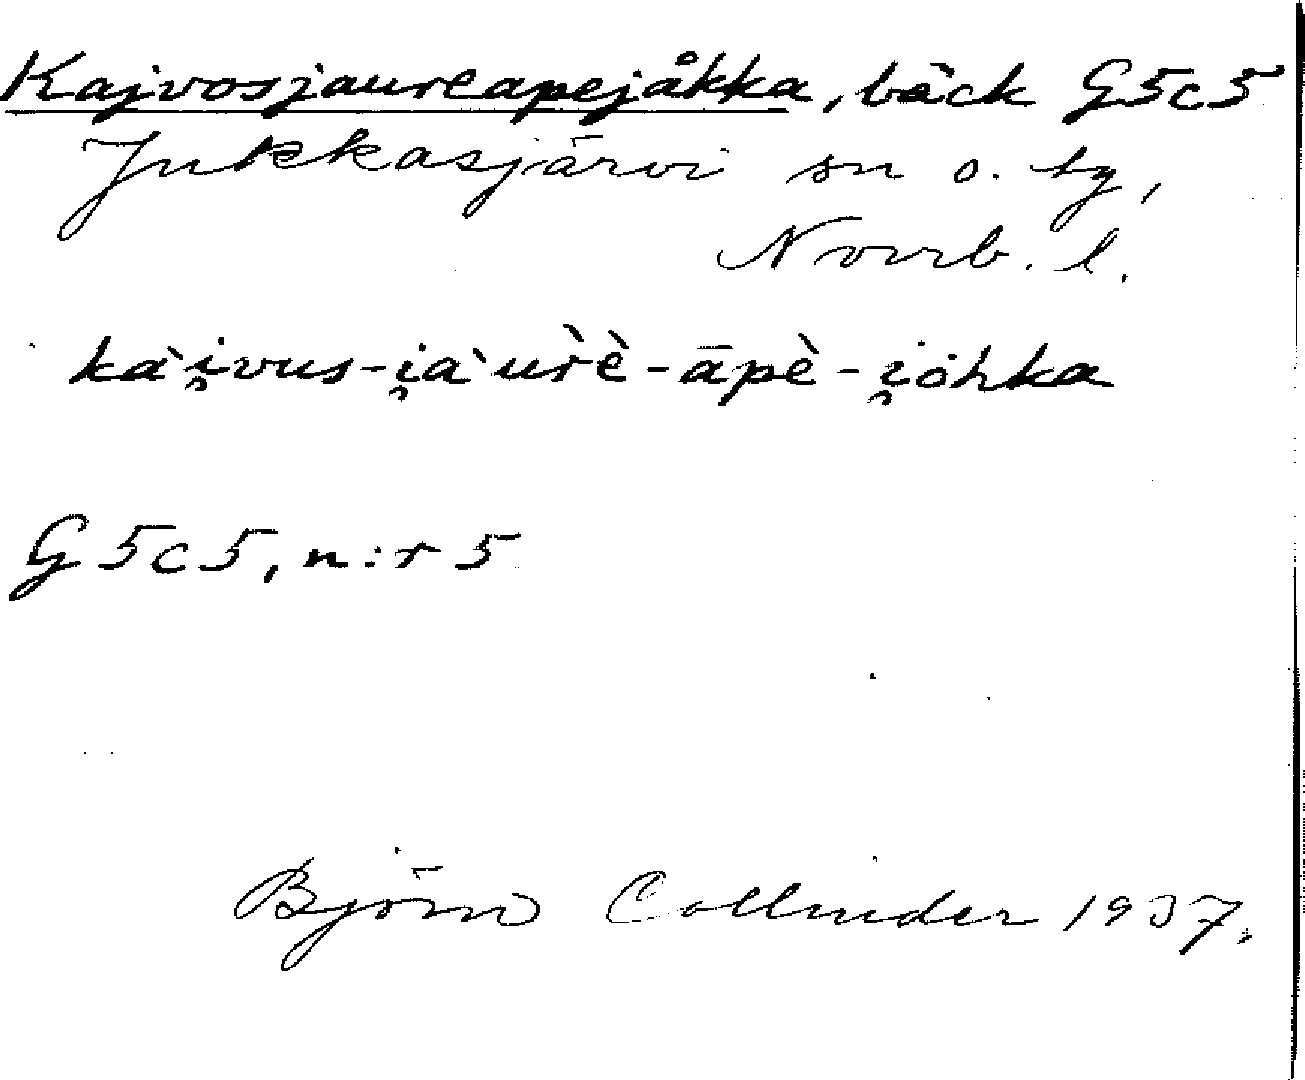 Kajvosjaureapejåkka, bäck G5c5
Jukkasjärvi sn o. tg,
Norrb. l.
kài̯vus-i̯àùr̀è-āpè-i̯ȯhka
G5c5, n:r 5
Björn Collinder 1937.